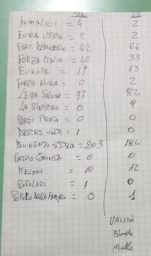 ANIMALISTI = 4 2
EUROPA VERDE = 2 2
PART. DEMOCRATICO = 42 66
FORZA ITALIA = 40 33
EUROPA = 19 13
FORZA NUOVA = 0 2
LEGA SALVINI = 97 82
LA SINISTRA = 0 9
PART. PIRATA = 0 0
DESTRE UNITE = 1 0
MOVIMENTO 5 STELLE = 203 184
0 0
MELONI = 10 12
POPOLARI = 1 0
POPOLO DELLA FAMIGLIA = 0 1
VALIDI
Bianche
Nulle